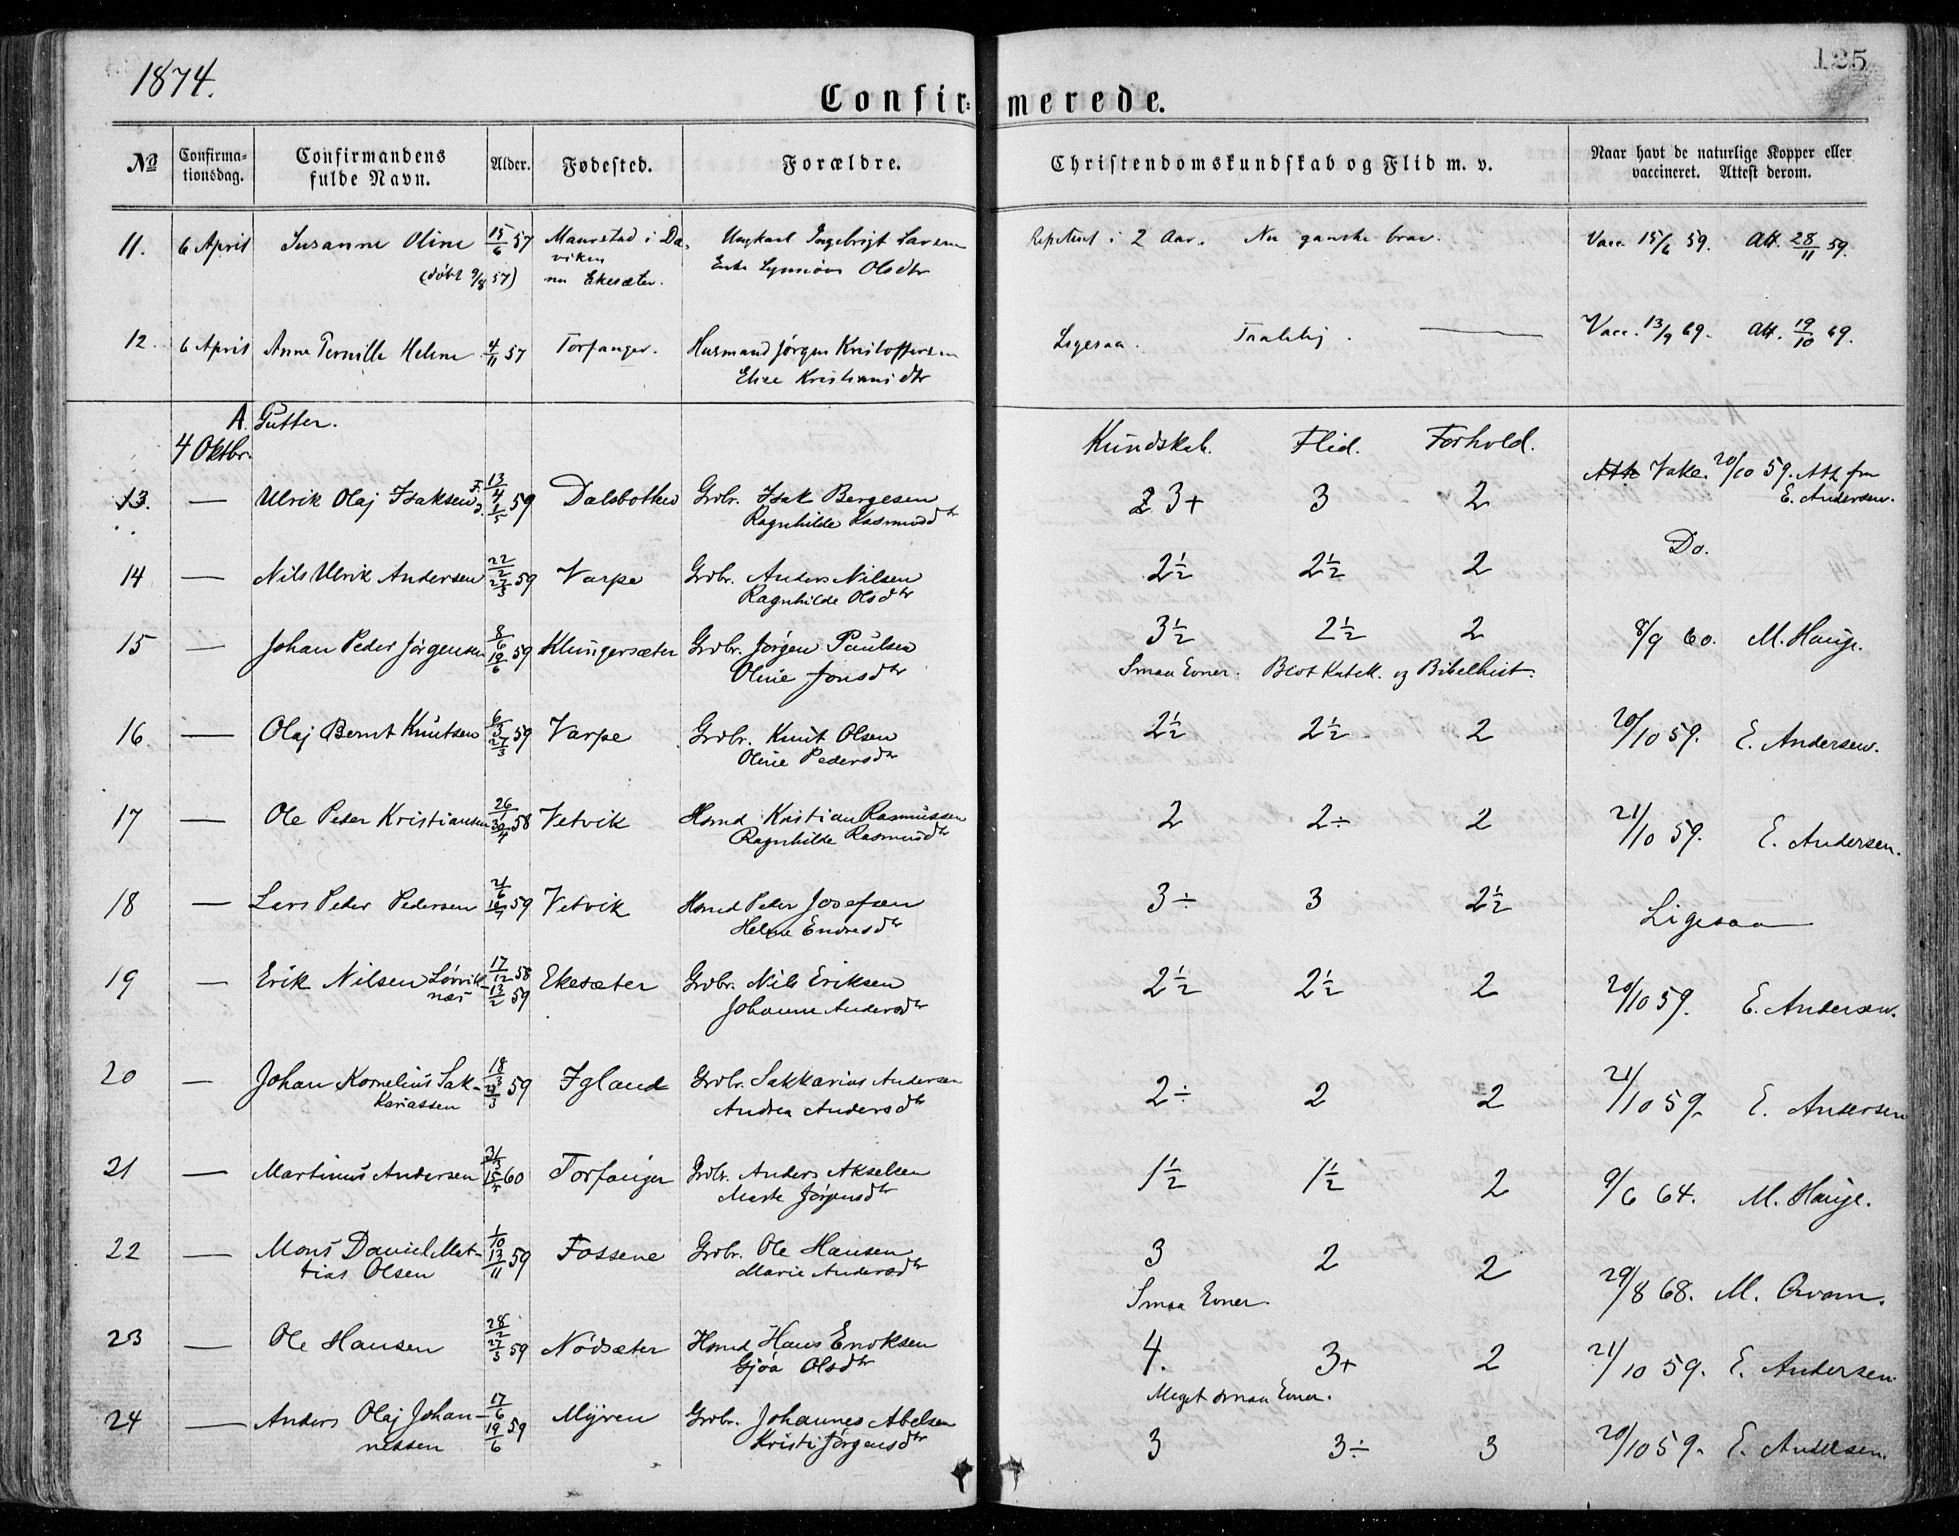 1874.
125
Confir= merede.
No Confirma=tionsdag. Confirmandens fulde Navn. Alder. Fødested. Forældre. Christendomskundskab og Flid m. v. Naar havt de naturlige Kopper eller vaccineret. Attest derom.
11. 6 April Susanne Oline 15/6 57 Maurstad i Da- Ungkarl Ingebrigt Larsen Repetent i 2 Aar. Nu ganske brav. Vacc. 15/6 59. Att. 28/11 59.
(døbt 9/8 57) viken Enke Synnöve Olsdtr
nu Ekesæter.
12. 6 April Anne Pernille Heline 4/11 57 Torfanger. Husmand Jørgen Kristoffersen Ligesaa. Taalelig. — Vacc. 13/9 69. Att. 19/10 69.
Elise Kristiansdtr
A. Gutter.
4 Oktbr. Kundskab. Flid. Forhold.
13. — Ulrik Olaj Isaksen F. 13/4 D. 1/5 59 Dalsbotten Grdbr. Isak Bergesen 3+ 3 2 Vakc. 20/10 59. Att. fra
Ragnhilde Rasmusdtr E. Andersen.
14 — Nils Ulrik Andersen 22/2 27/3 59 Varpe Grdbr. Anders Nilsen 2½ 2½ 2 Do.
Ragnhilde Olsdtr
15 — Johan Peder Jørgensen 8/6 19/6 59 Klungersæter Grdbr. Jørgen Paulsen 3½ 2½ 2 8/9 60. M. Hauge.
Oline Jonsdtr Smaa Evner. Blot Katek. og Bibelhist.
16 — Olaj Bernt Knutsen 6/3 27/3 59 Varpe Grdbr. Knut Olsen 2½ 2½ 2 20/10 59. E. Andersen.
Oline Pedersdtr
17 — Ole Peder Kristiansen 26/1 30/4 58 Vetvik Hsmd Kristian Rasmussen 2 2÷ 2 21/10 59. E. Andersen.
Ragnhilde Rasmusdtr
18 — Lars Peder Pedersen 21/6 59 Vetvik Hsmd Peder Josefsen 3÷ 3 2½ Ligesaa
Helene Endresdtr
19 — Erik Nilsen Lørvik- 17/12 58 Ekesæter Grdbr. Nils Eriksen 2½ 2½ 2 20/10 59. E. Andersen.
næs 13/2 59 Johanne Andersdtr
20 — Johan Kornelius Sak- 18/3 59 Igland Grdbr. Sakkarias Andersen 2÷ 2 2 21/10 59. E. Andersen
kariassen Andrea Andersdtr
21 — Martinus Andersen 31/3 60 Torfanger Grdbr. Anders Akselsen 1½ 1½ 2 9/6 64. M. Hauge.
Marte Jørgensdtr
22 — Mons Daniel Mat- 1/10 13/11 59 Fossene Grdbr. Ole Hansen 3 2 2 29/8 68. M. Qvam.
tias Olsen Marie Andersdtr Smaa Evner.
23 — Ole Hansen 28/2 27/3 59 Nødsæter Hsmd Hans Enoksen 4. 3+ 2 21/10 59. E. Andersen
Gjøa Olsdtr Meget smaa Evner.
24 — Anders Olaj Johan- 17/6 19/6 59 Myren Grdbr. Johannes Abelsen 3 3÷ 3 20/10 59. E. Andersen.
nessen Kristi Jørgensdtr